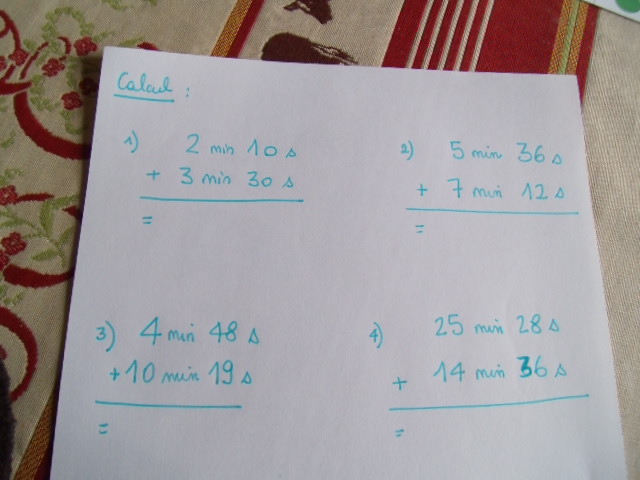 Calcul :
1) 2 min 10 s
+ 3 min 30 s
=
2) 5 min 36 s
+ 7 min 12 s
=
3) 4 min 48 s
+ 10 min 19 s
=
4) 25 min 28 s
+ 14 min 36 s
=